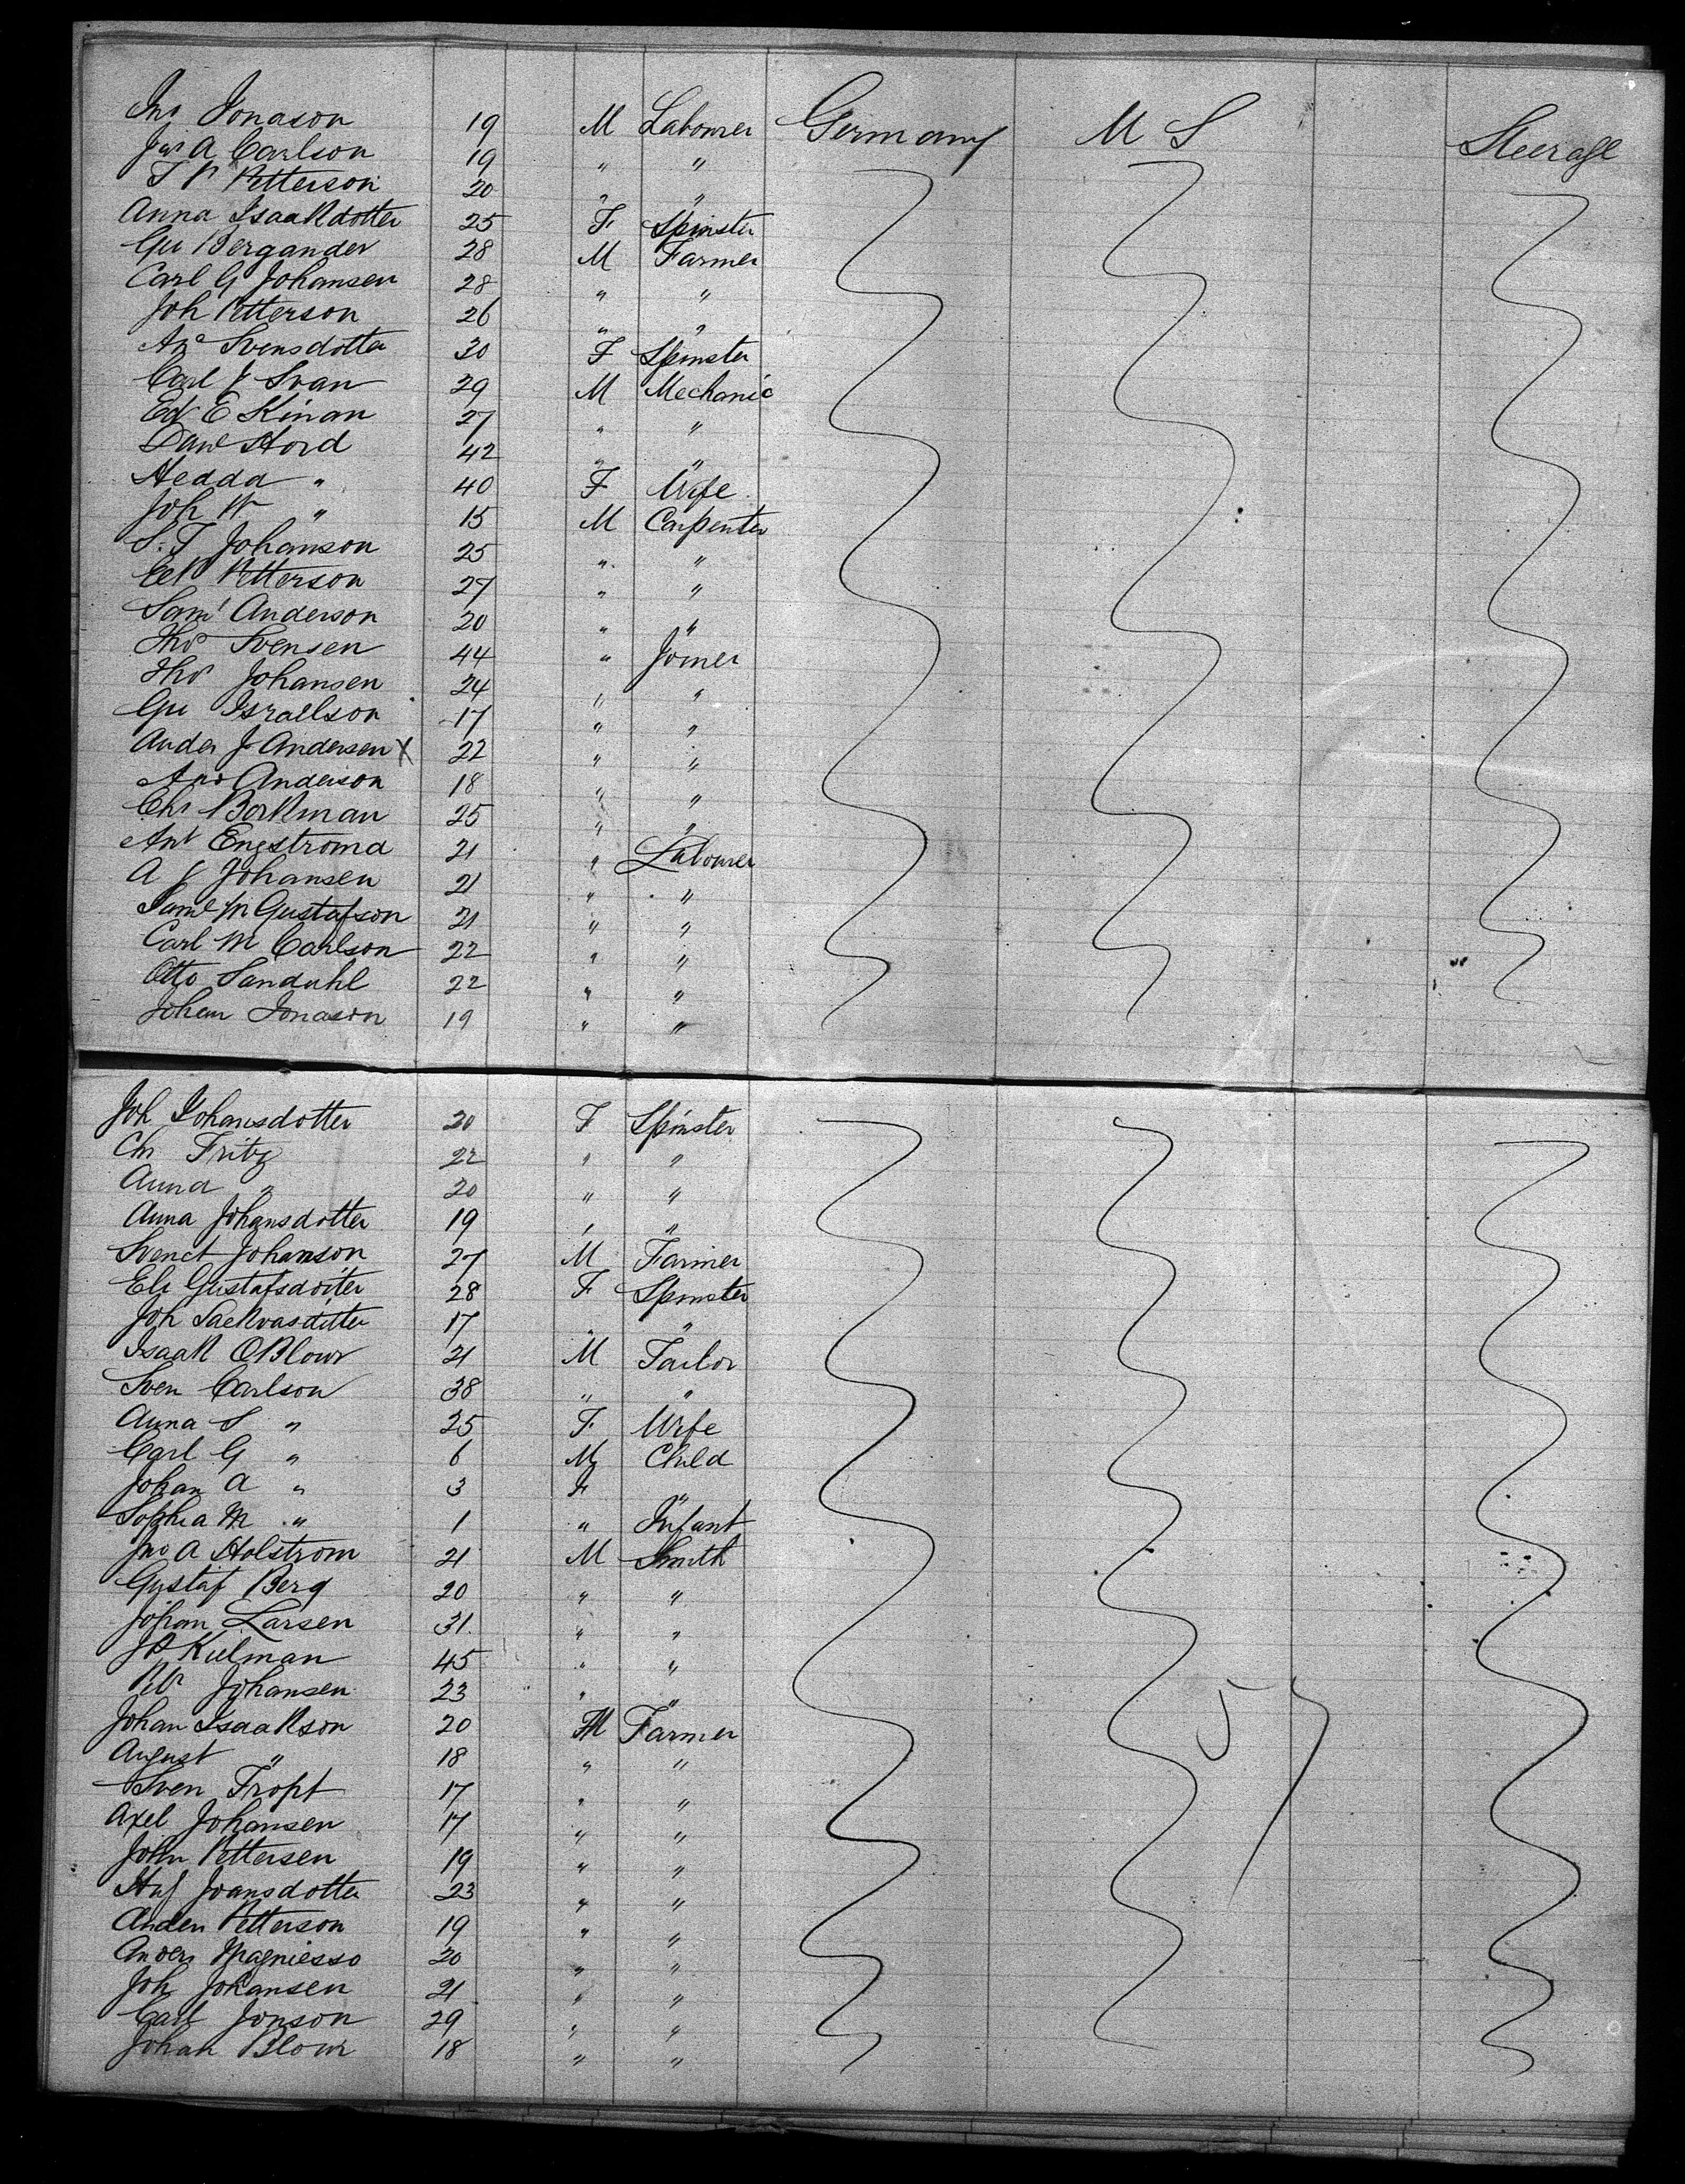 Jno Jonason 19 M Labourer Germany U S Steerage
Jas A Carlson 19 " "
J P Petterson 20 " "
Anna Isaakdotter 25 F Spinster
Gu Bergander 28 M Farmer
Carl G Johansen 28 " "
Joh Petterson 26 " "
An Svensdotter 30 F Spinster
Carl J Svan 29 M Mechanic
Ed E Kinan 27 " "
Danl Hord 42 " "
Hedda " 40 F Wife
Joh W " 15 M Carpenter
S. J Johanson 25 " "
Petterson 27 " "
Saml Anderson 20 " "
Thos Svensen 44 " Joiner
Thos Johansen 24 " "
Gu Israelson 17 " "
Ander J Andersen X 22 " "
And Anderson 18 " "
Chr Borkman 25 " "
Ant Engstroma 21 " Labourer
A J Johansen 21 " "
Saml M Gustafson 21 " "
Carl M Carlson 22 " "
Otto Sanduhl 22 " "
Johan Jonason 19 " "
Joh Johansdotter 20 F Spinster
Chr Fritz 22 " "
Anna " 20 " "
Anna Johansdotter 19 " "
Svenct Johanson 27 M Farmer
Ele Gustafsdotter 28 F Spinster
Joh 17 " "
Isaak O Blour 21 M Tailor
Sven Carlson 38 " "
Anna S " 25 F Wife
Carl G " 6 M Child
Johan A " 3 F "
Sophia M " 1 " Infant
Jno A Holstrom 21 M Smith
Gustaf Berg 20 " "
Johan Larsen 31 " "
J P Kulman 45 " "
Petr Johansen 23 " "
Johan Isaakson 20 M Farmer
August " 18 " "
Sven Tropt 17 " "
Axel Johansen 17 " "
John Pettersen 19 " "
Joansdotter 23 " "
Anden Petterson 19 " "
Anders Magniesso 20 " "
Joh Johansen 21 " "
Carl Jonson 29 " "
Johan Blour 18 " "
57